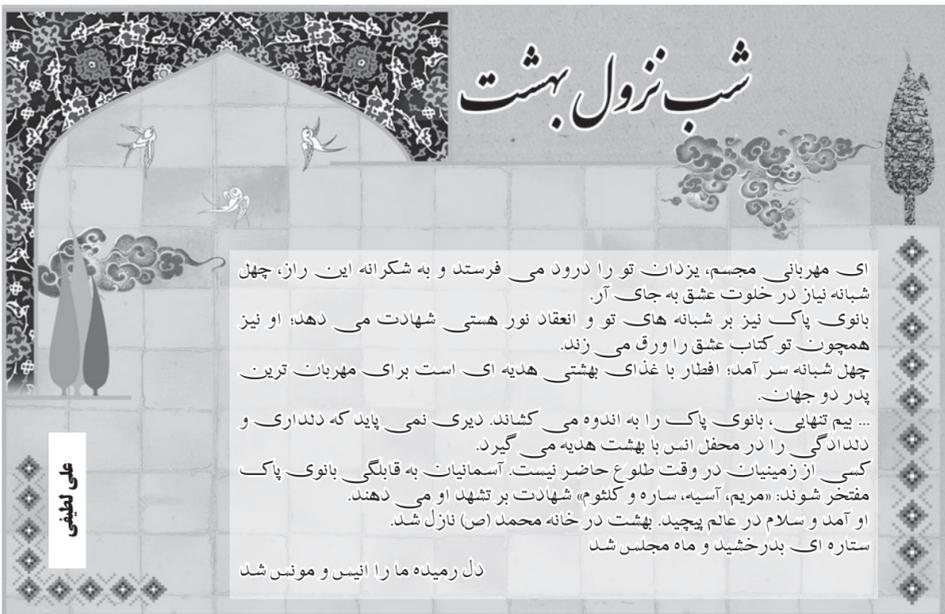 شب نزول بهشت
ای مهربانی مجسم، یزدان تو را درود می فرستد و به شکرانه این راز، چهل
شبانه نیاز در خلوت عشق به جای آر.
بانوی پاک نیز بر شبانه های تو و انعقاد نور هستی شهادت می دهد؛ او نیز
همچون تو کتاب عشق را ورق می زند.
چهل شبانه سر آمد؛ افطار با غذای بهشتی هدیه ای است برای مهربان ترین
پدر دو جهان.
... بیم تنهایی، بانوی پاک را به اندوه می کشاند. دیری نمی پاید که دلداری و
دلدادگی را در محفل انس با بهشت هدیه می گیرد.
کسی از زمینیان در وقت طلوع حاضر نیست. آسمانیان به قابلگی بانوی پاک
مفتخر شوند: «مریم، آسیه، ساره و کلثوم» شهادت بر تشهد او می دهند.
او آمد و سلام در عالم پیچید. بهشت در خانه محمد (ص) نازل شد.
ستاره ای بدرخشید و ماه مجلس شد
دل رمیده ما را انیس و مونس شد
علی لطیفی